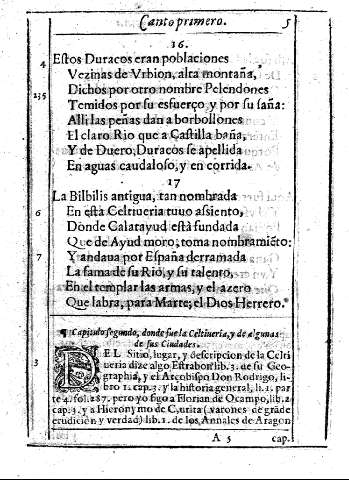 Canto primero. 5
16.
4 Estos Duracos eran poblaciones
Vezinas de Vrbion, alta montaña,
235 Dichos por otro nombre Pelendones
Temidos por su esfuerço y por su saña:
Alli las peñas dan a borbollones
El claro Rio que a Castilla baña,
Y de Duero, Duracos se apellida
En aguas caudaloso, y en corrida.
17
La Bilbilis antigua, tan nombrada
6 En esta Celtiueria tuuo assiento,
Donde Calatayud està fundada
Que de Ayud moro, toma nombramiẽto:
7 Y andaua por España derramada
La fama de su Rio, y su talento,
En el templar las armas, y el azero
Que labra, para Marte, el Dios Herrero.
¶ Capitulo segundo, donde fue la Celtiueria, y de algunas
de sus Ciudades.
3 DEL Sitio, lugar, y descripcion de la Celti
ueria dize algo Estrabon lib. 3. de su Geo-
graphia, y el Arçobispo Don Rodrigo, li-
bro 1. cap. 3. y la historia general, li. 1. par
te 4. fol. 287. pero yo sigo a Florian de Ocampo, lib. 2.
cap. 3. y a Hieronymo de Çurita (varones de grãde
erudicion y verdad) lib. 1. de los Annales de Aragon
A 5 cap.